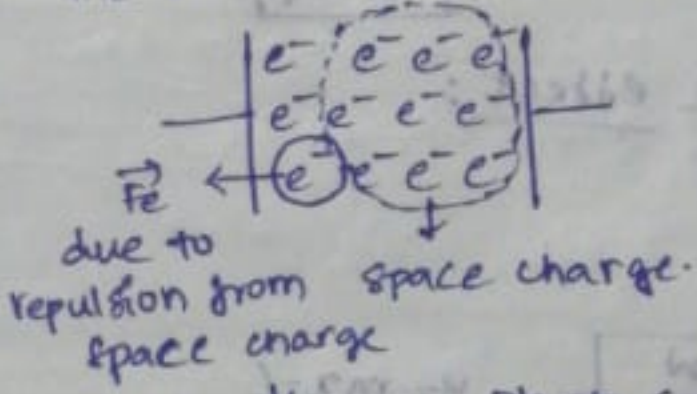 e⁻ e⁻ e⁻ e⁻
e⁻ e⁻ e⁻ e⁻
e⁻ e⁻ e⁻ e⁻
F⃗e
due to
repulsion from space charge.
space charge